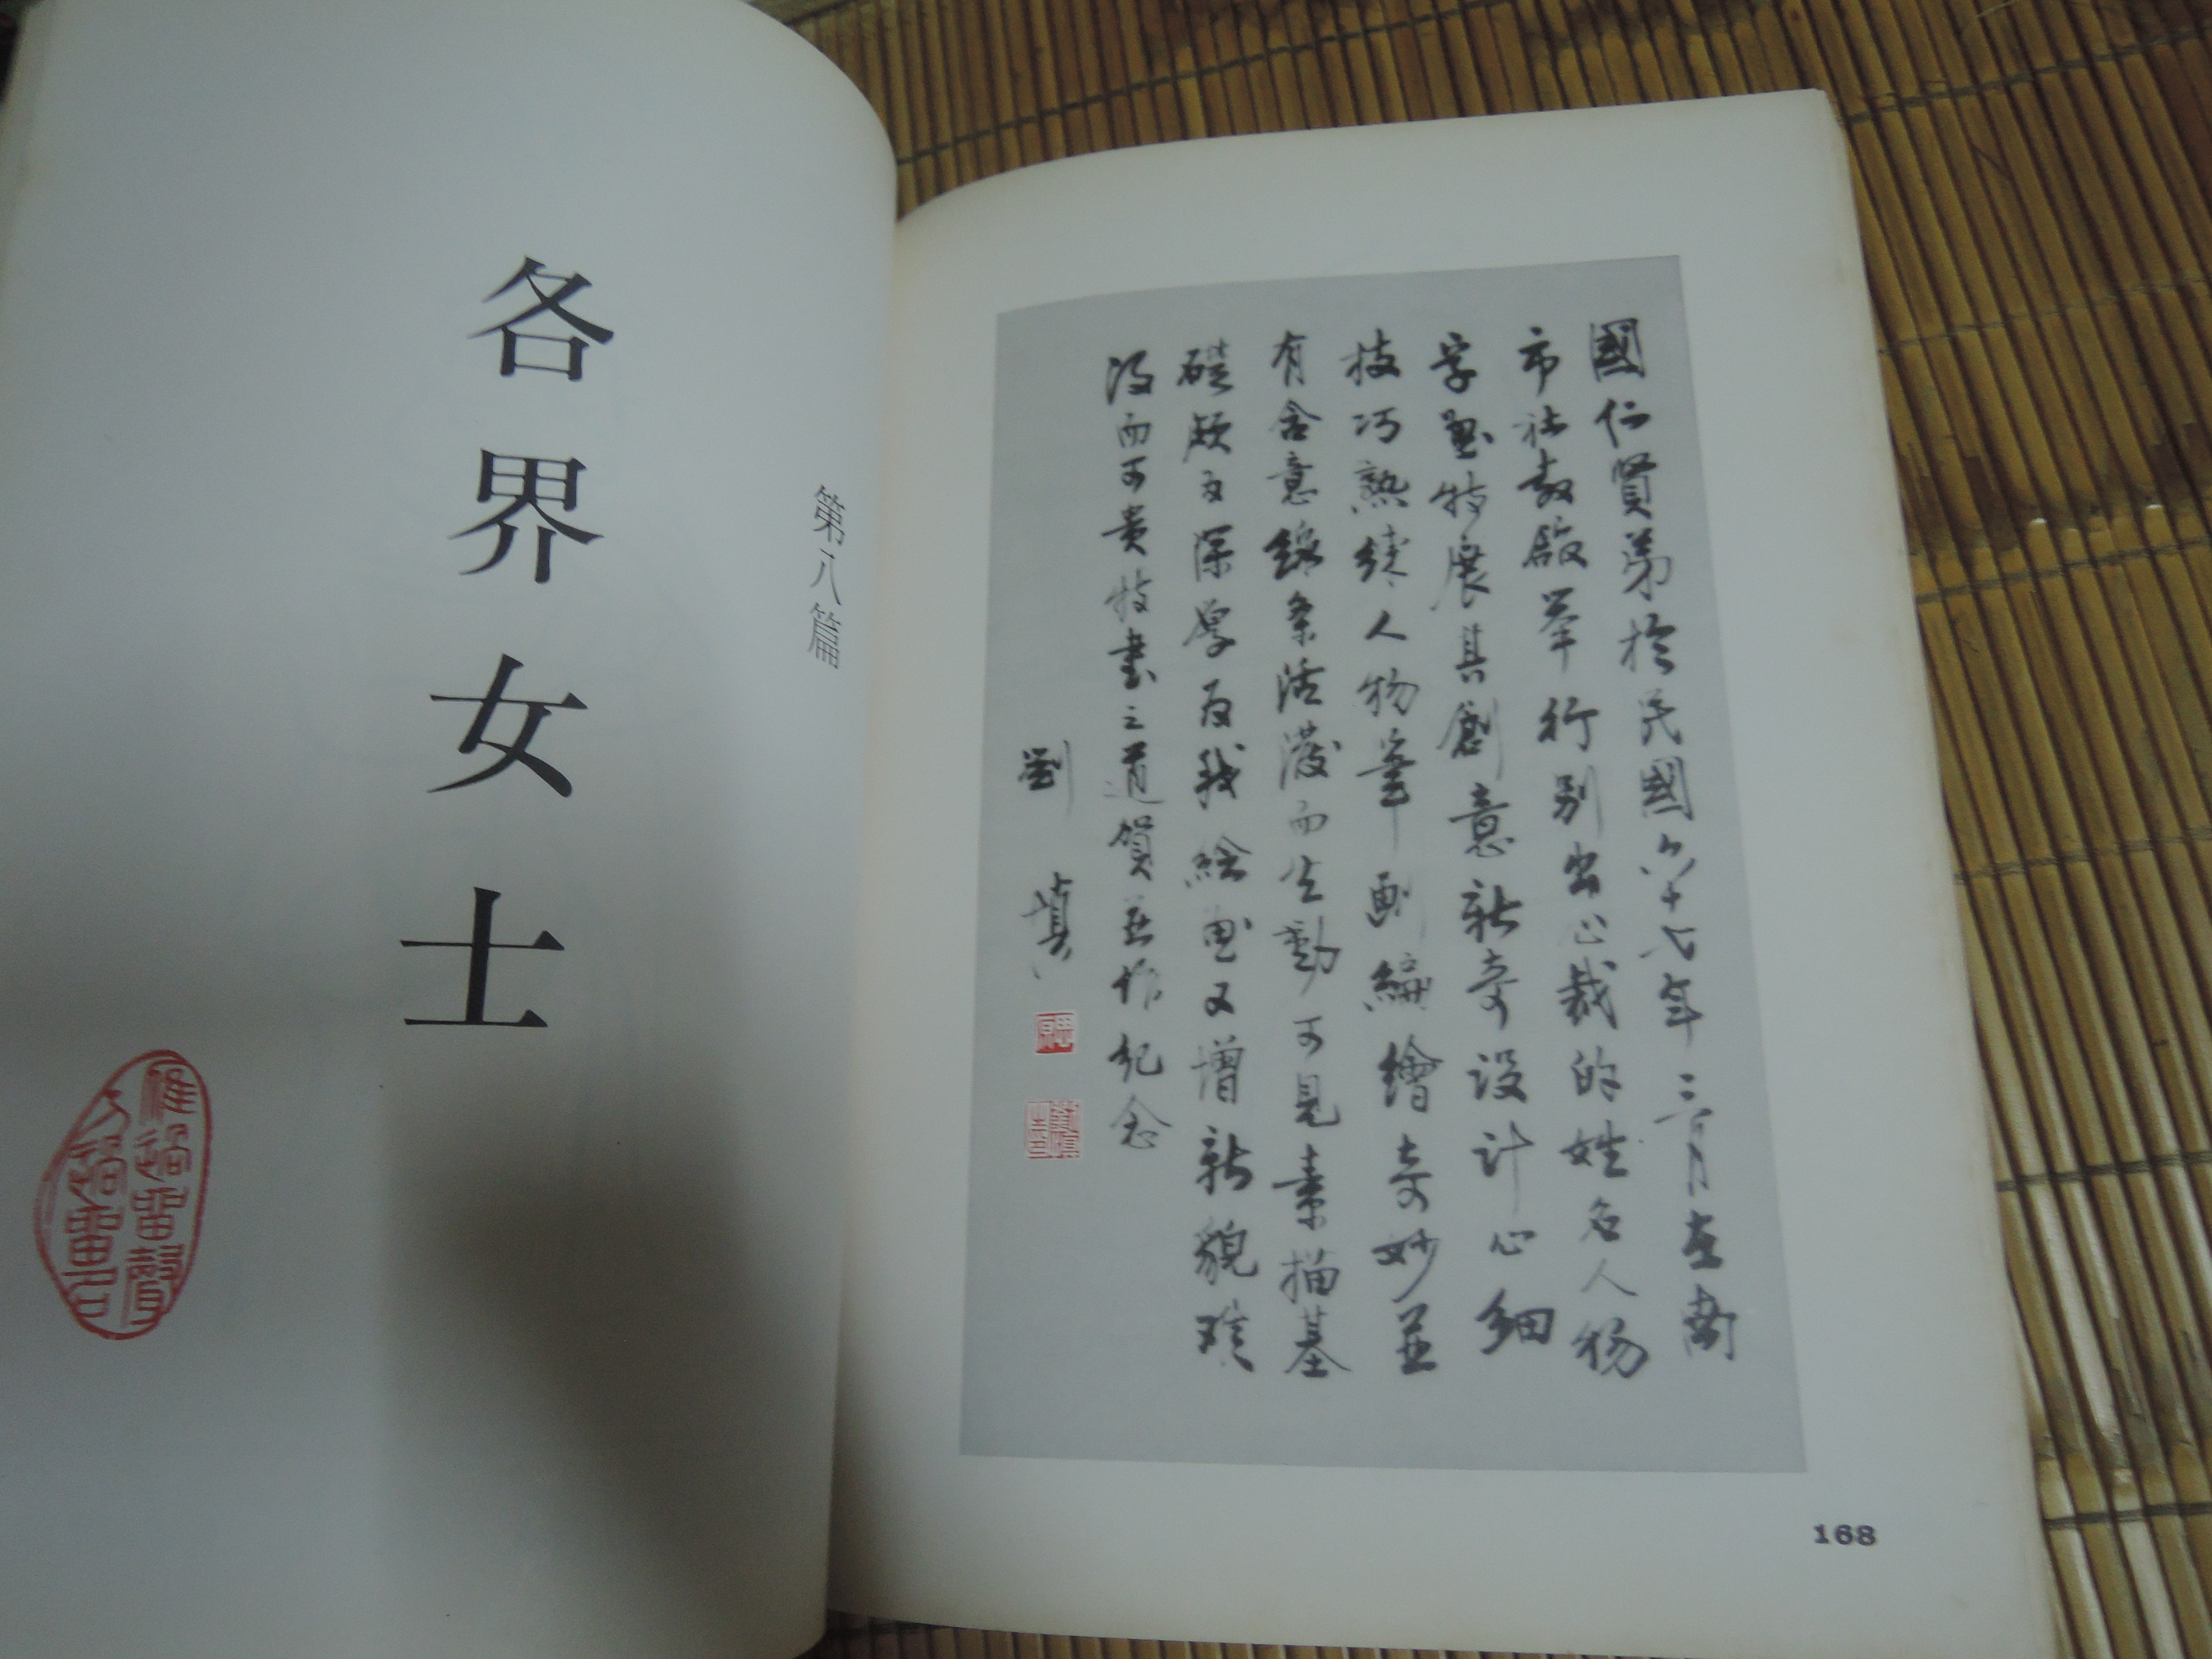 國仁賢弟於民國六十七年三月在南
市社教館舉行別出心裁的姓名人物
字畫特展其創意新奇設計心細
技巧熟練人物筆劃編繪奇妙並
有含意線条活潑而生動可見素描基
礎頗為深厚為我繪画又增新貌難
得而可貴特書之道賀並作紀念
劉 慎
168
第八篇
各界女士
雁過留聲
人過留名